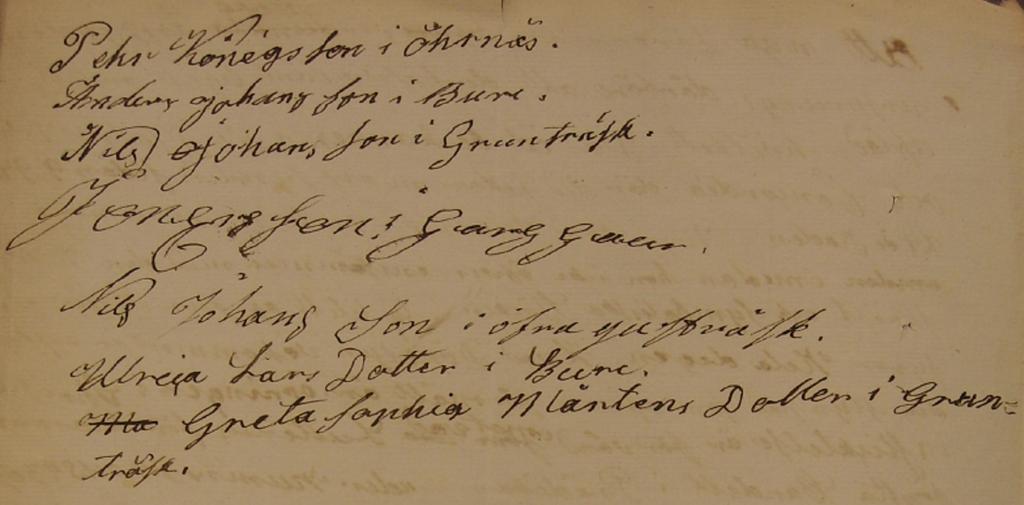 Pehr Könegsson i Öhrnäs.
Anders Johans son i Bure.
Nils Johans son i Grunträsk.
son i
Nils Johans Son i öfra
Ulrica Lars Dotter i Bure.
Ma Greta Sophia Mårtens Dotter i Grun=
träsk.